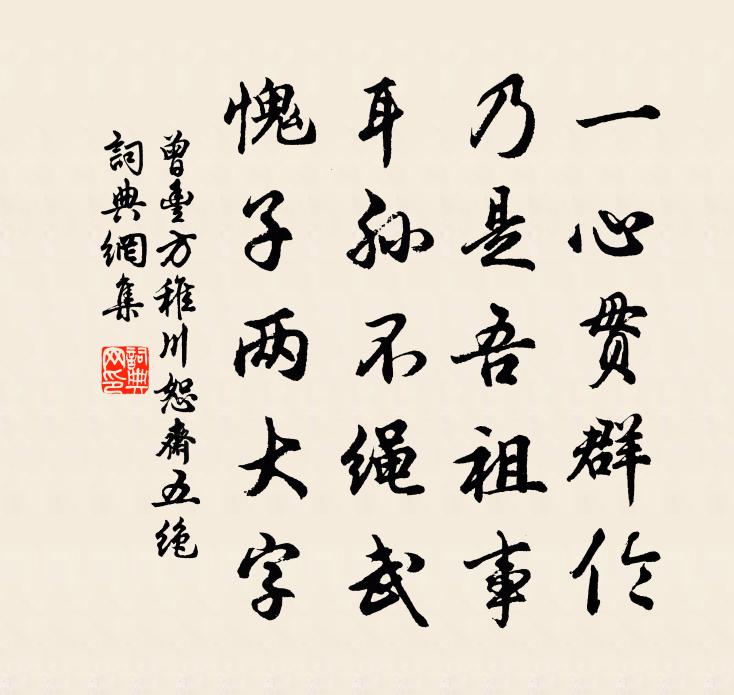 一心贯群伦
乃是吾祖事
耳孙不绳武
愧子两大字
曾丰方稚川恕斋五绝
词典网集
词典网印